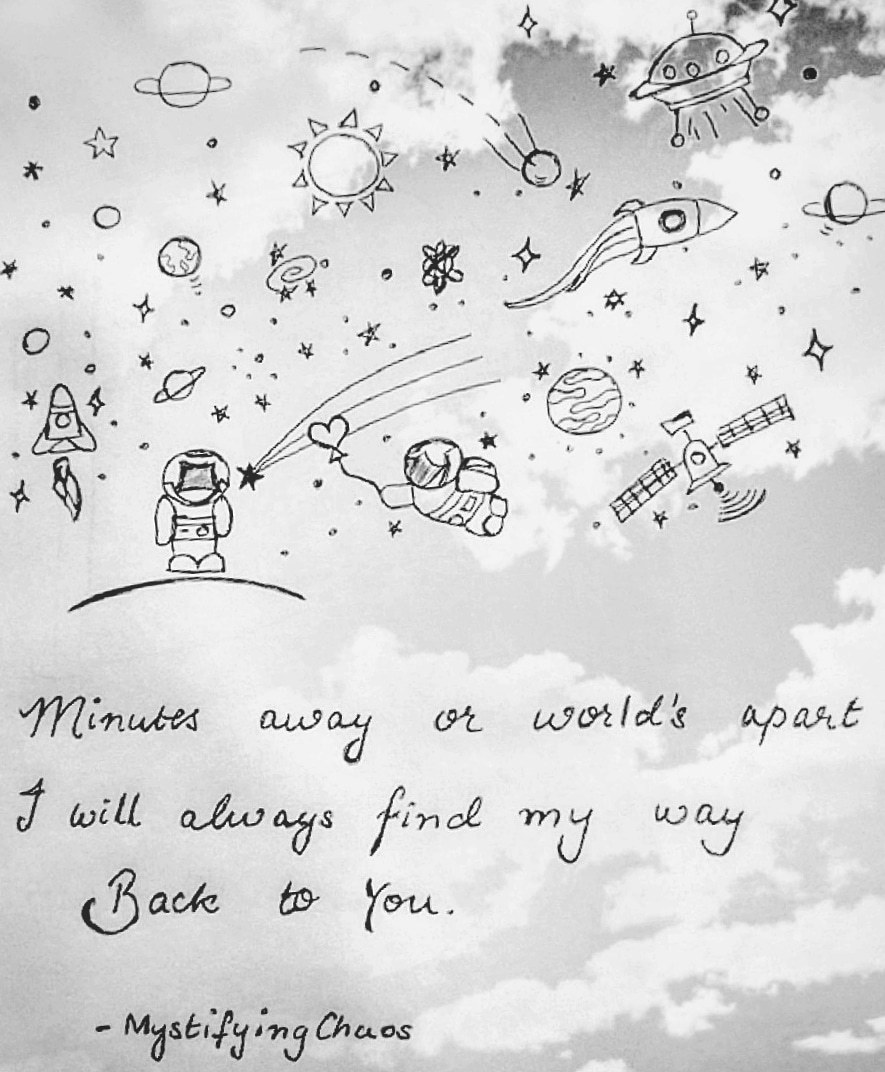 Minutes away or world's apart
I will always find my way
Back to You.
- Mystifying Chaos